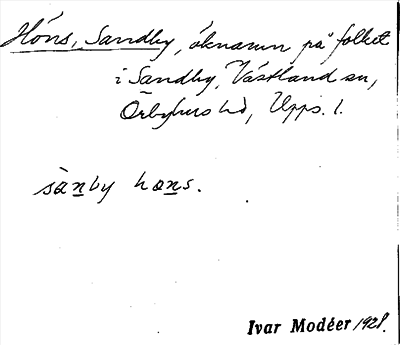 Höns, Sandby, öknamn på folket
i Sandby, Västland sn,
Örbyhus hd, Upps. l.
sànby hons.
Ivar Modéer 1928.